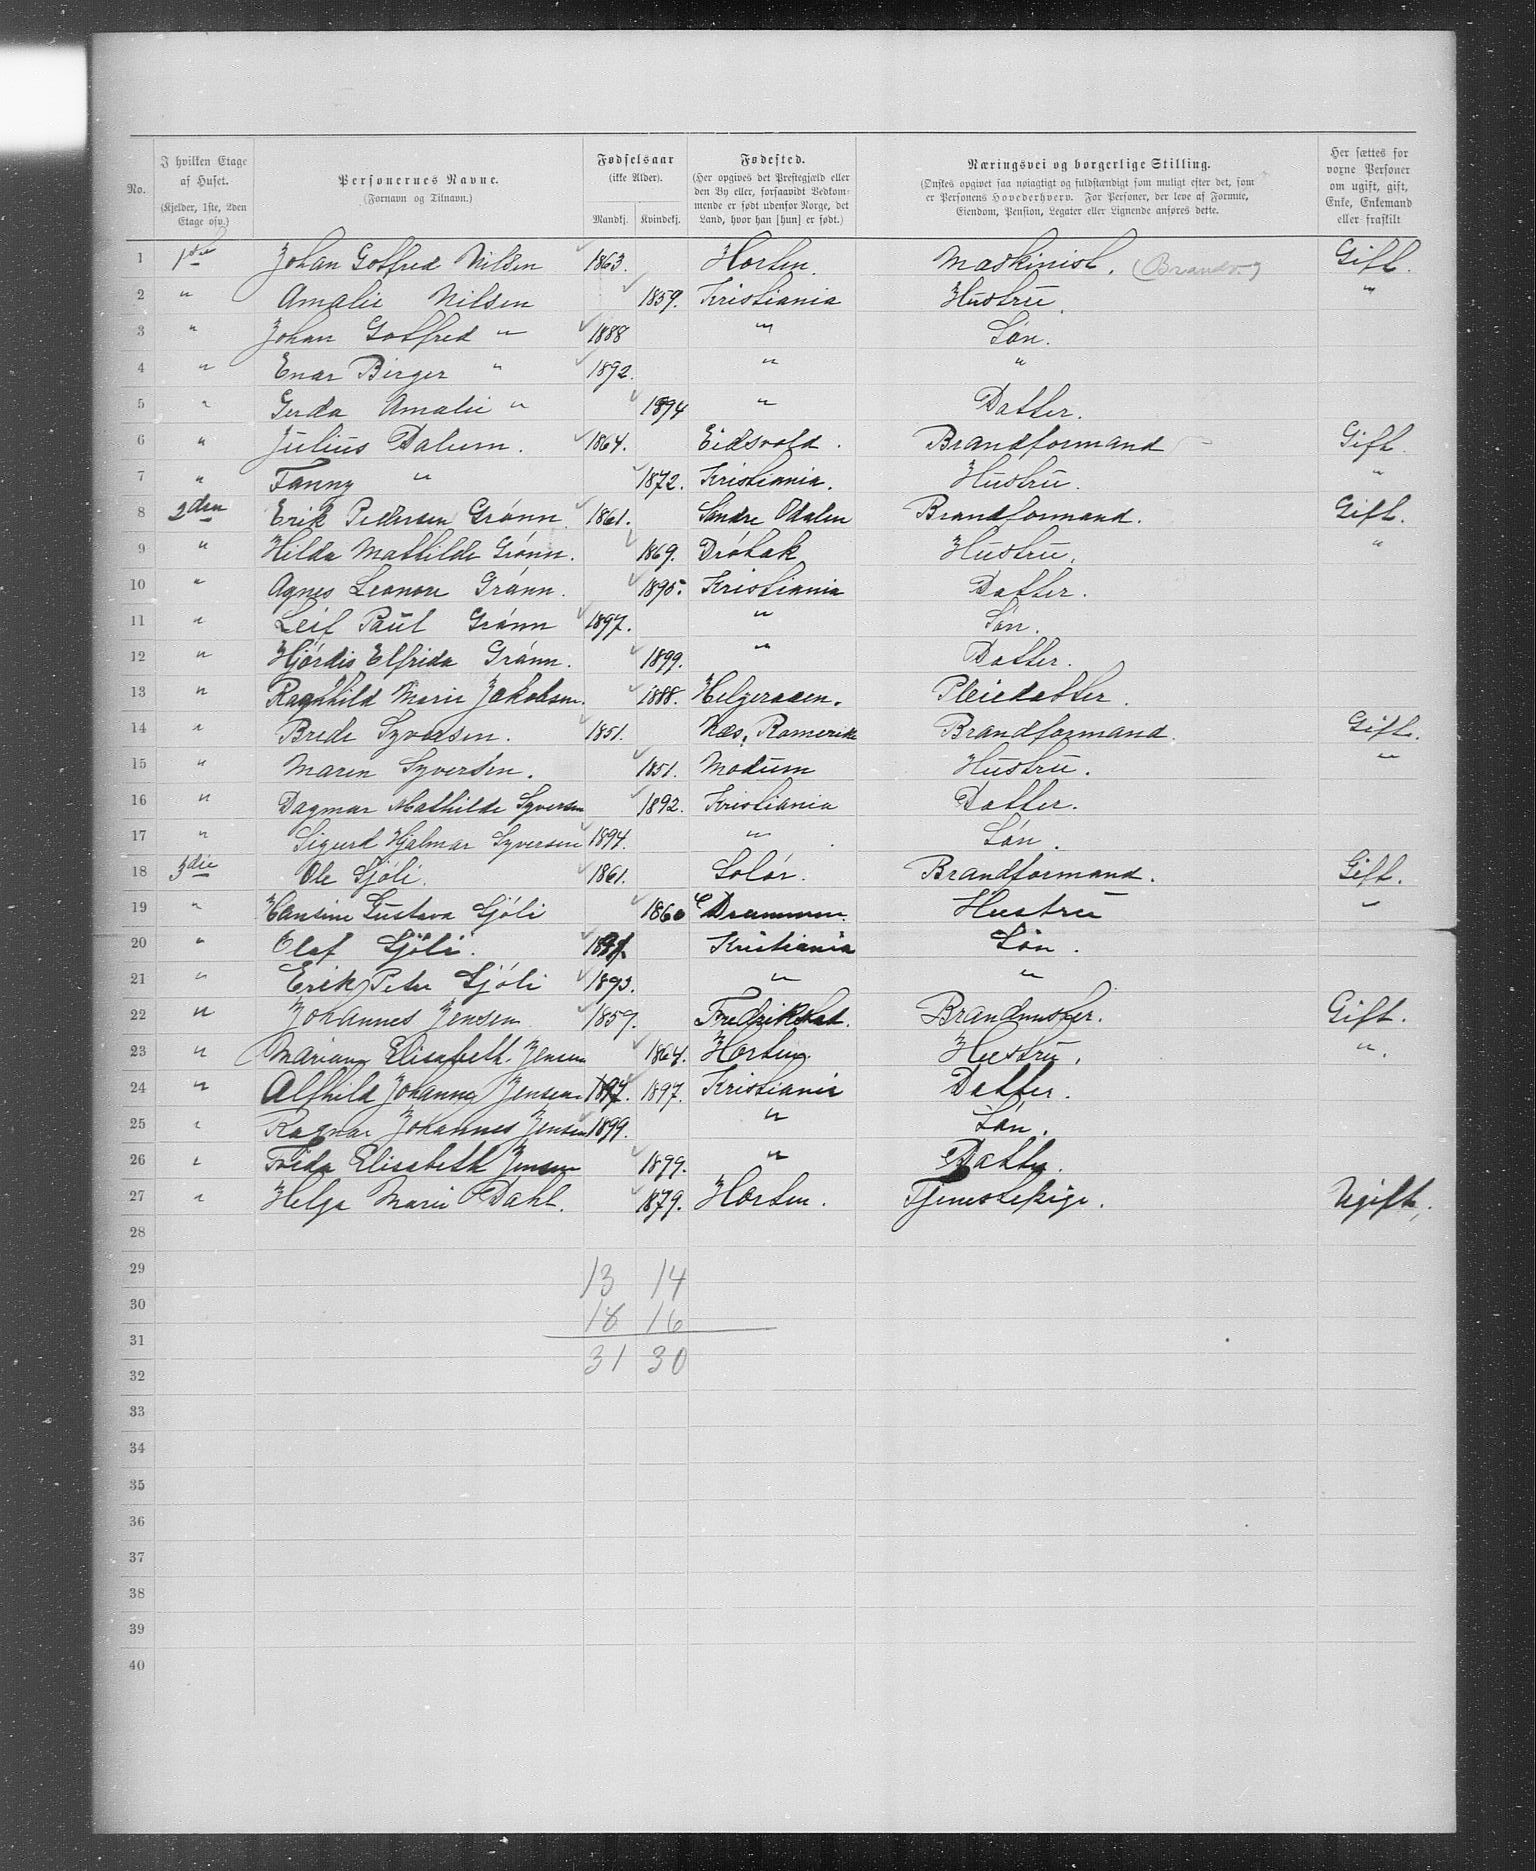 No.
I hvilken Etage af Huset. (Kjelder, 1ste, 2den Etage osv.)
Personernes Navne. (Fornavn og Tilnavn.)
Fødselsaar (ikke Alder). Mandkj. Kvindekj.
Fødested. (Her opgives det Prestegjæld eller den By eller, forsaavidt Vedkommende er født udenfor Norge, det Land, hvor han [hun] er født.)
Næringsvei og borgerlige Stilling. (Ønskes opgivet saa nøiagtigt og fuldstændigt som muligt efter det, som er Personens Hovederhverv. For Personer, der leve af Formue, Eiendom, Pension, Legater eller Lignende anføres dette.
Her sættes for voxne Personer om ugift, gift, Enke, Enkemand eller fraskilt
1 1ste Johan Gotfred Nilsen 1863. Horten. Maskinist. (Brandv.) Gift.
2 " Amalie Nilsen 1859. Kristiania Hustru. "
3 " Johan Gotfred " 1888 " Søn.
4 " Enar Birger " 1892. " "
5 " Gerda Amalie " 1894 " Datter.
6 " Julius Dalum. 1864. Eidsvold. Brandformand Gift.
7 " Fanny " 1872. Kristiania. Hustru. "
8 2den Erik Pedersen Grønn. 1861. Søndre Odalen Brandformand. Gift.
9 " Hilda Mathilde Grønn. 1869. Drøbak Hustru. "
10 " Agnes Leonore Grønn. 1895. Kristiania Datter.
11 " Leif Paul Grønn 1897. " Søn.
12 " Hjørdis Elfrida Grønn. 1899. " Datter.
13 " Ragnhild Marie Jakobsen. 1888. Helgeraaen. Pleiedatter.
14 " Brede Syversen. 1851. Næs, Romerike Brandformand. Gift.
15 " Maren Syversen. 1851. Modum Hustru. "
16 " Dagmar Mathilde Syversen 1892. Kristiania Datter.
17 " Sigurd Hjalmar Syversen 1894. " Søn.
18 3die Ole Sjøli. 1861. Solør. Brandformand. Gift.
19 " Hansine Gustava Sjøli 1860 Drammen. Hustru "
20 " Olaf Sjøli. Kristiania Søn.
21 " Erik Peter Sjøli 1893. " "
22 " Johannes Jensen 1859. Fredrikstad. Brandmester. Gift.
23 " Mariane Elisabeth Jensen 1864. Horten. Hustru. ".
24 " Alfhild Johanne Jensen 1897. 1897. Kristiania Datter.
25 " Ragnar Johannes Jensen 1899. " Søn.
26 " Frida Elisabeth Jensen 1899. " Datter.
27 " Helga Marie Dahl. 1879. Horten. Tjenestepige. Ugift.
28
29 13 14
30 18 16
31
32 31 30
33
34
35
36
37
38
39
40